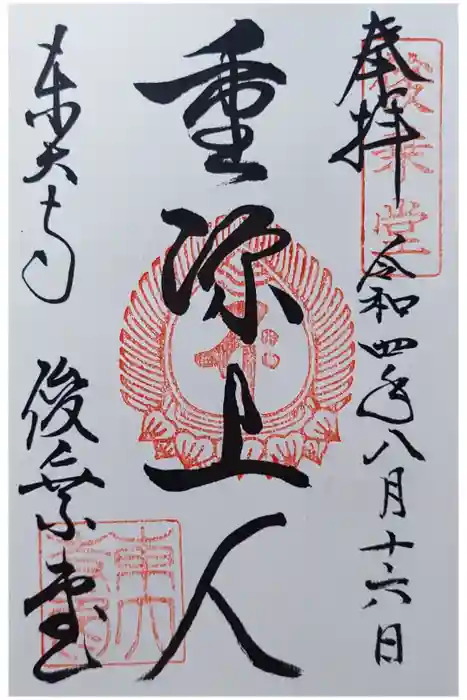 奉拝
令和四年八月十六日
重源上人
東大寺
俊乗堂
俊乗堂